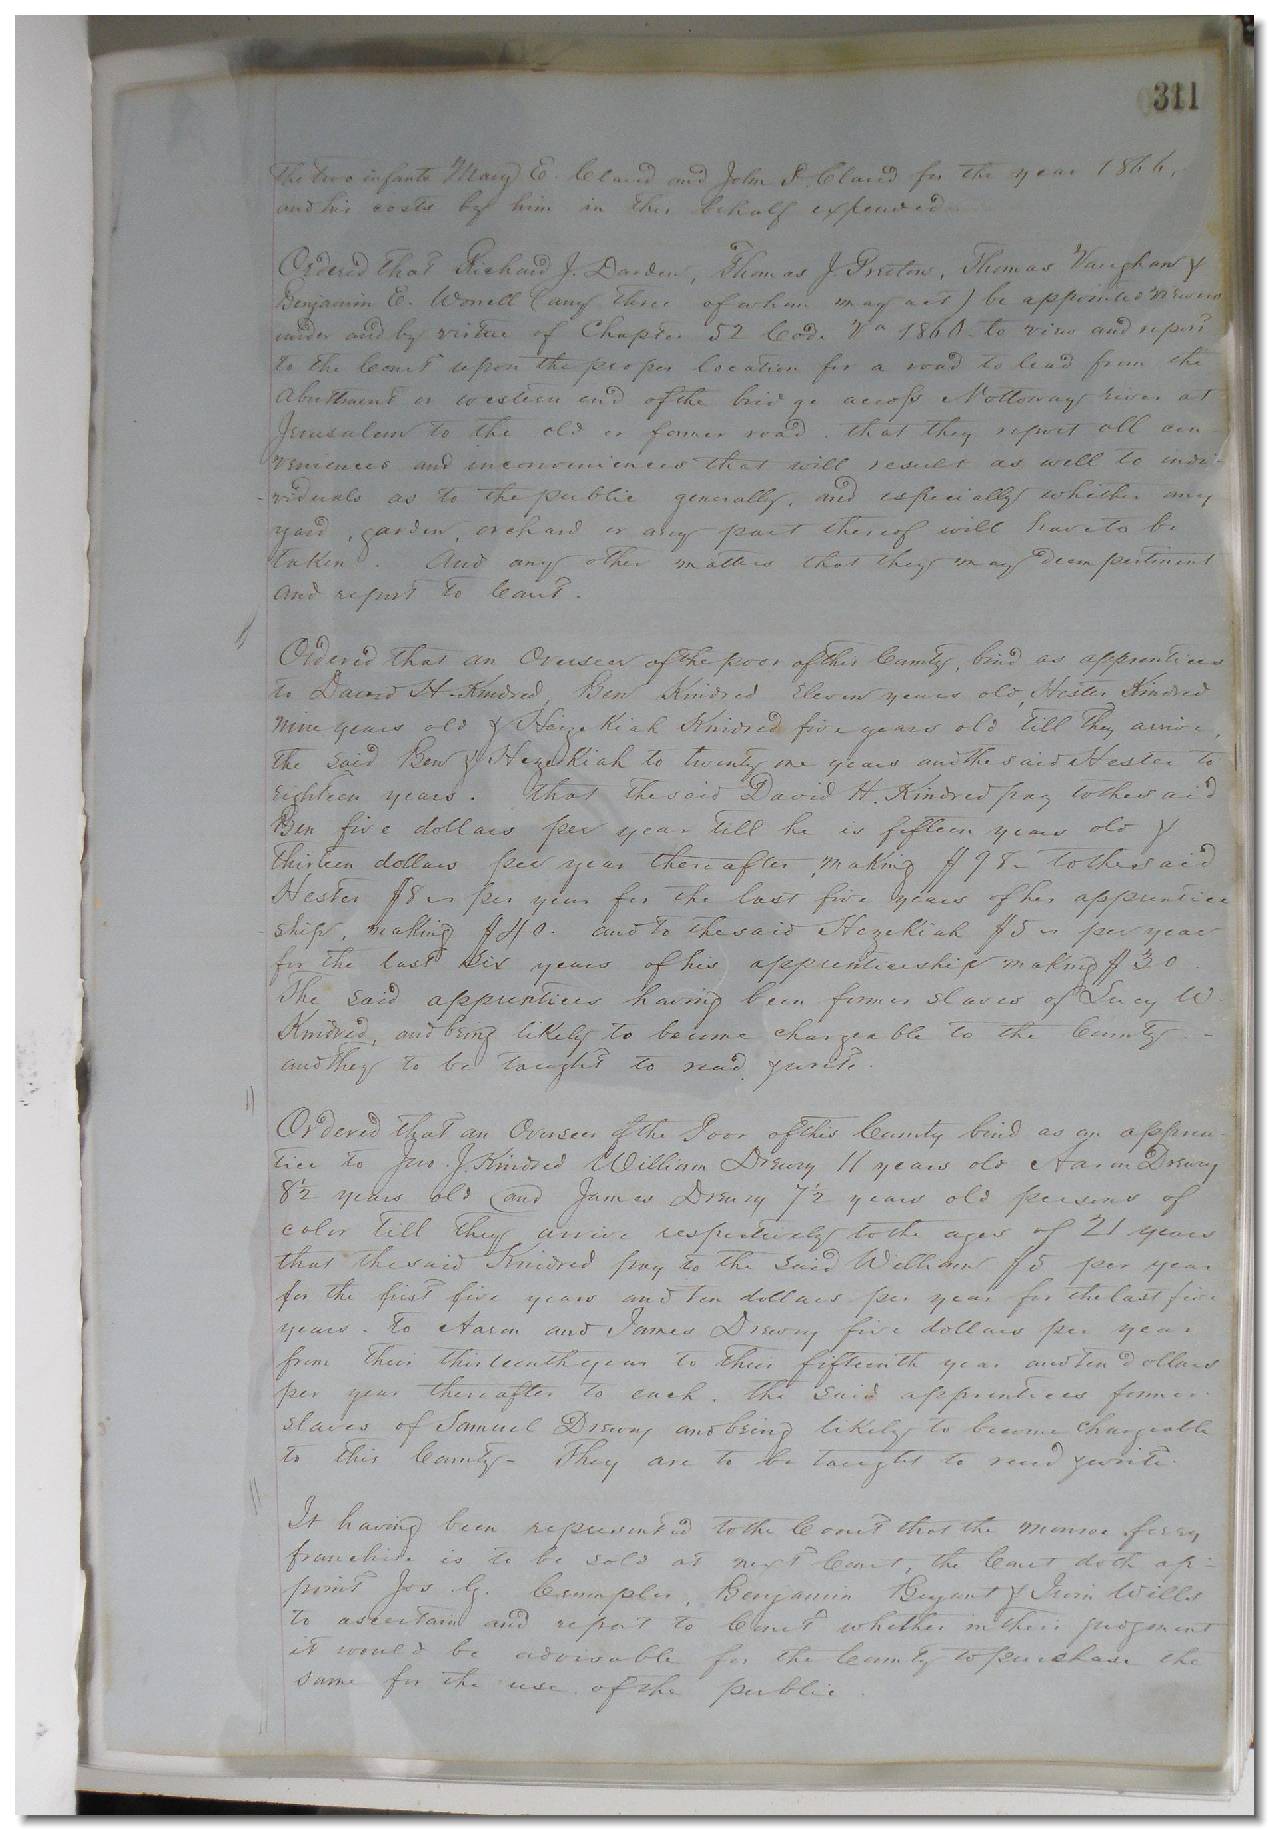 311
the two infants Mary E. Claud and John I. Claud for the year 1866,
and his costs by him in this behalf expended
Ordered that Richard J. Darden, Thomas J. Pretlow, Thomas Vaughan &
Benjamin E. Worrell (any three of whom may act) be appointed viewers
under and by virtue of Chapter 52 Code Va 1860 to view and report
to the Court upon the proper location for a road to lead from the
abuttment or western end of the bridge across Nottoway river at
Jerusalem to the old or former road. that they report all con-
veniences and inconveniences that will result as well to indi-
viduals as to the public generally, and especially whether any
yard, garden, orchard or any part thereof will have to be
taken. And any other matters that they may deem pertinent
and report to Court.
Ordered that an Overseer of the poor of this County, bind as apprentices
to David H. Kindred, Ben Kindred Eleven years old, Hester Kindred
nine years old & Hezekiah Kindred five years old till they arrive,
the said Ben & Hezekiah to twenty one years and the said Hester to
Eighteen years. That the said David H. Kindred pay to the said
Ben five dollars per year till he is fifteen years old &
thirteen dollars per year thereafter, making $98 - to the said
Hester $8 - per year for the last five years of her apprentice
ship, making $40. and to the said Hezekiah $5 - per year
for the last six years of his apprenticeship making $30
The said apprentices having been former slaves of Lucy W.
Kindred, and being likely to become chargeable to the County -
and they to be taught to read & write.
Ordered that an Overseer of the Poor of this County bind as an appren-
tice to Jno. J. Kindred William Drewry 11 years old Aaron Drewry
8½ years old and James Drewry 7½ years old persons of
color till they arrive respectively to the ages of 21 years
that the said Kindred pay to the said William $5 per year
for the first five years and ten dollars per year for the last five
years. To Aaron and James Drewry five dollars per year
from their thirteenth year to their fifteenth year and ten dollars
per year thereafter to each. The said apprentices former
slaves of Samuel Drewry and being likely to become chargeable
to this County - They are to be taught to read & write.
It having been represented to the Court that the Monroe ferry
franchise is to be sold at next Court, the Court doth ap-
point Jos G. Crumpler, Benjamin Bryant & Irvin Wills
to ascertain and report to Court whether in their judgment
it would be advisable for the County to purchase the
same for the use of the public.